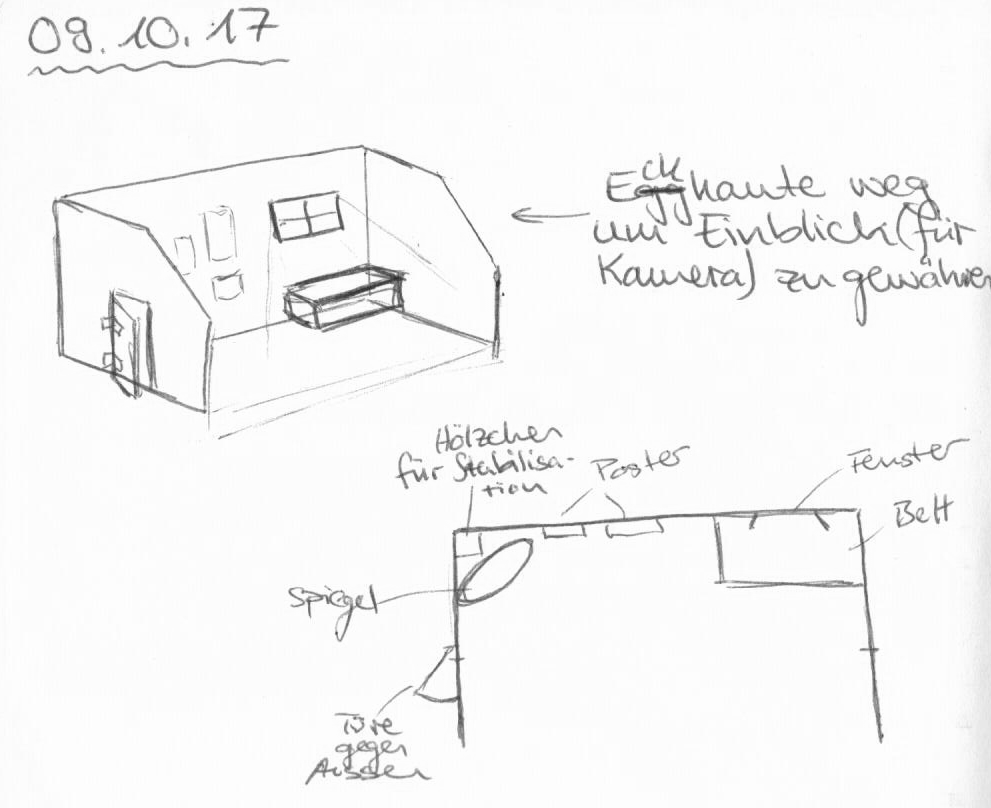 09.10.17
Eckkaute weg
um Einblick (für
Kamera) zu gewähren
Hölzchen
für Stabilisa-
tion
Poster
Fenster
Bett
Spiegel
Türe
gegen
Aussen